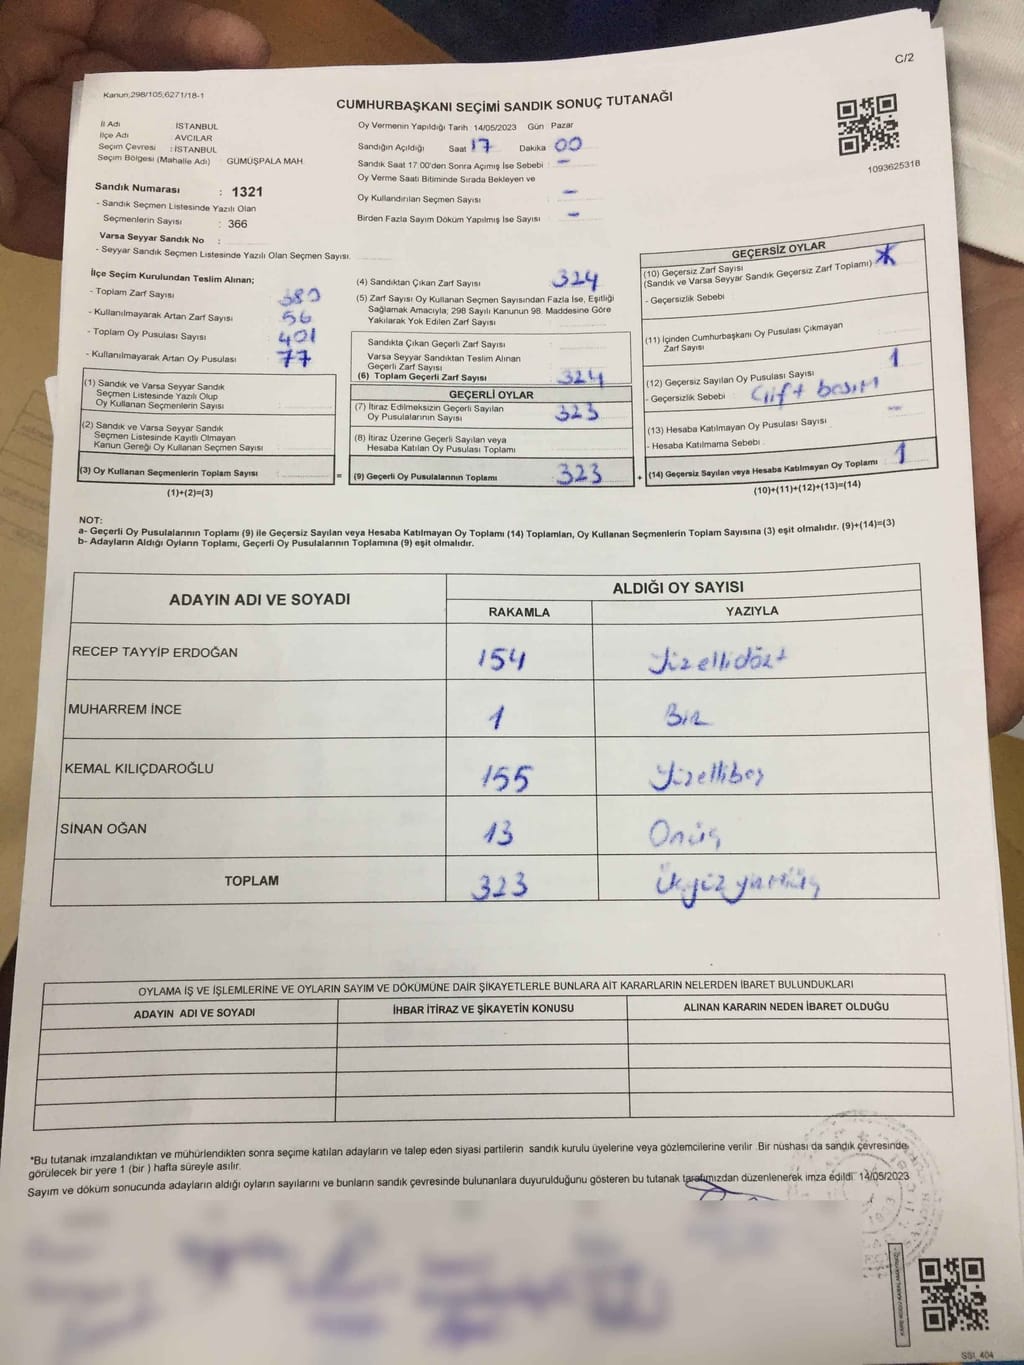 C/2
Kanun,298/105,6271/18-1
CUMHURBAŞKANI SEÇİMİ SANDIK SONUÇ TUTANAĞI
İl Adı İSTANBUL
İlçe Adı AVCILAR
Seçim Çevresi : İSTANBUL
Seçim Bölgesi (Mahalle Adı) GÜMÜŞPALA MAH.
Sandık Numarası : 1321
- Sandık Seçmen Listesinde Yazılı Olan
Seçmenlerin Sayısı : 366
Varsa Seyyar Sandık No :
- Seyyar Sandık Seçmen Listesinde Yazılı Olan Seçmen Sayısı.
Oy Vermenin Yapıldığı Tarih 14/05/2023 Gün Pazar
Sandığın Açıldığı Saat 17 Dakika 00
Sandık Saat 17:00'den Sonra Açımış İse Sebebi : -
Oy Verme Saati Bitiminde Sırada Bekleyen ve
Oy Kullandırılan Seçmen Sayısı -
Birden Fazla Sayım Döküm Yapılmış İse Sayısı -
1093625318
İlçe Seçim Kurulundan Teslim Alınan;
- Toplam Zarf Sayısı 380
- Kullanılmayarak Artan Zarf Sayısı 56
- Toplam Oy Pusulası Sayısı 401
- Kullanılmayarak Artan Oy Pusulası 77
(1) Sandık ve Varsa Seyyar Sandık
Seçmen Listesinde Yazılı Olup
Oy Kullanan Seçmenlerin Sayısı
(2) Sandık ve Varsa Seyyar Sandık
Seçmen Listesinde Kayıtlı Olmayan
Kanun Gereği Oy Kullanan Seçmen Sayısı
(3) Oy Kullanan Seçmenlerin Toplam Sayısı
(1)+(2)=(3)
(4) Sandıktan Çıkan Zarf Sayısı 324
(5) Zarf Sayısı Oy Kullanan Seçmen Sayısından Fazla İse, Eşitliği
Sağlamak Amacıyla; 298 Sayılı Kanunun 98. Maddesine Göre
Yakılarak Yok Edilen Zarf Sayısı
Sandıkta Çıkan Geçerli Zarf Sayısı
Varsa Seyyar Sandıktan Teslim Alınan
Geçerli Zarf Sayısı
(6) Toplam Geçerli Zarf Sayısı 324
GEÇERLİ OYLAR
(7) İtiraz Edilmeksizin Geçerli Sayılan
Oy Pusulalarının Sayısı 323
(8) İtiraz Üzerine Geçerli Sayılan veya
Hesaba Katılan Oy Pusulası Toplamı
= (9) Geçerli Oy Pusulalarının Toplamı 323 +
GEÇERSİZ OYLAR
(10) Geçersiz Zarf Sayısı
(Sandık ve Varsa Seyyar Sandık Geçersiz Zarf Toplamı)
- Geçersizlik Sebebi
(11) İçinden Cumhurbaşkanı Oy Pusulası Çıkmayan
Zarf Sayısı
(12) Geçersiz Sayılan Oy Pusulası Sayısı 1
- Geçersizlik Sebebi Çift basım
(13) Hesaba Katılmayan Oy Pusulası Sayısı -
- Hesaba Katılmama Sebebi
(14) Geçersiz Sayılan veya Hesaba Katılmayan Oy Toplamı 1
(10)+(11)+(12)+(13)=(14)
NOT:
a- Geçerli Oy Pusulalarının Toplamı (9) ile Geçersiz Sayılan veya Hesaba Katılmayan Oy Toplamı (14) Toplamları, Oy Kullanan Seçmenlerin Toplam Sayısına (3) eşit olmalıdır. (9)+(14)=(3)
b- Adayların Aldığı Oyların Toplamı, Geçerli Oy Pusulalarının Toplamına (9) eşit olmalıdır.
ADAYIN ADI VE SOYADI ALDIĞI OY SAYISI
RAKAMLA YAZIYLA
RECEP TAYYİP ERDOĞAN 154 Yüzellidört
MUHARREM İNCE 1 Bir
KEMAL KILIÇDAROĞLU 155 Yüzellibeş
SİNAN OĞAN 13 Onüç
TOPLAM 323 Üçyüzyirmiüç
OYLAMA İŞ VE İŞLEMLERİNE VE OYLARIN SAYIM VE DÖKÜMÜNE DAİR ŞİKAYETLERLE BUNLARA AİT KARARLARIN NELERDEN İBARET BULUNDUKLARI
ADAYIN ADI VE SOYADI İHBAR İTİRAZ VE ŞİKAYETİN KONUSU ALINAN KARARIN NEDEN İBARET OLDUĞU
*Bu tutanak imzalandıktan ve mühürlendikten sonra seçime katılan adayların ve talep eden siyasi partilerin sandık kurulu üyelerine veya gözlemcilerine verilir. Bir nüshası da sandık çevresinde
görülecek bir yere 1 (bir ) hafta süreyle asılır.
Sayım ve döküm sonucunda adayların aldığı oyların sayılarını ve bunların sandık çevresinde bulunanlara duyurulduğunu gösteren bu tutanak tarafımızdan düzenlenerek imza edildi. 14/05/2023
SSI_404